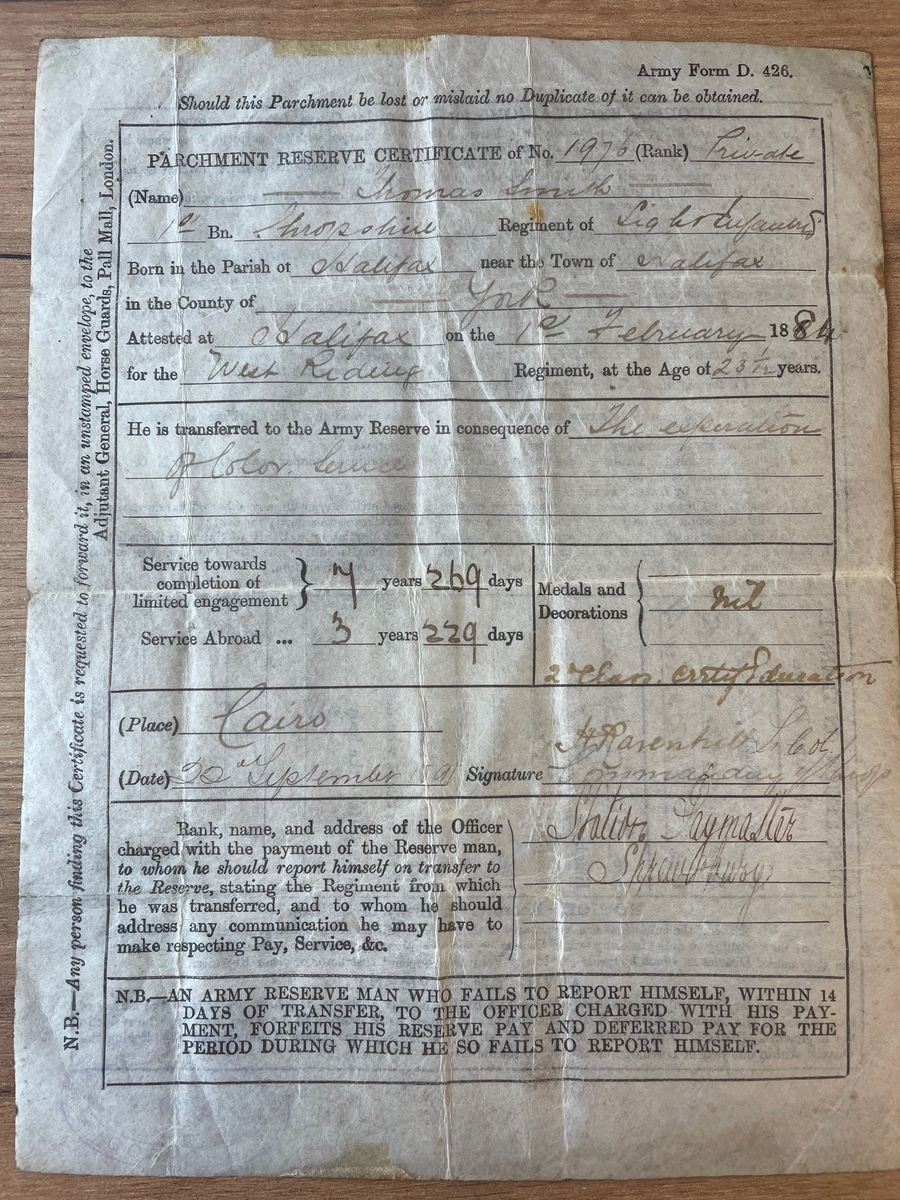 Army Form D. 426.
Should this Parchment be lost or mislaid no Duplicate of it can be obtained.
PARCHMENT RESERVE CERTIFICATE of No. 1976 (Rank) Private
(Name) Thomas Smith
1st Bn. Shropshire Regiment of Light Infantry
Born in the Parish of Halifax near the Town of Halifax
in the County of York
Attested at Halifax on the 1st February 1884
for the West Riding Regiment, at the Age of 23 1/12 years.
He is transferred to the Army Reserve in consequence of The expiration
of Color Service
Service towards completion of limited engagement } 7 years 269 days
Service Abroad ... 3 years 229 days
Medals and Decorations { nil
2 Class. Certif Education
(Place) Cairo
(Date) September 1891 Signature H Ravenhill Lt. Col.
Commanding
Rank, name, and address of the Officer
charged with the payment of the Reserve man,
to whom he should report himself on transfer to
the Reserve, stating the Regiment from which
he was transferred, and to whom he should
address any communication he may have to
make respecting Pay, Service, &c.
Station Paymaster
Shrewsbury
N.B.—AN ARMY RESERVE MAN WHO FAILS TO REPORT HIMSELF, WITHIN 14
DAYS OF TRANSFER, TO THE OFFICER CHARGED WITH HIS PAY-
MENT, FORFEITS HIS RESERVE PAY AND DEFERRED PAY FOR THE
PERIOD DURING WHICH HE SO FAILS TO REPORT HIMSELF.
N.B.—Any person finding this Certificate is requested to forward it, in an unstamped envelope, to the
Adjutant General, Horse Guards, Pall Mall, London.